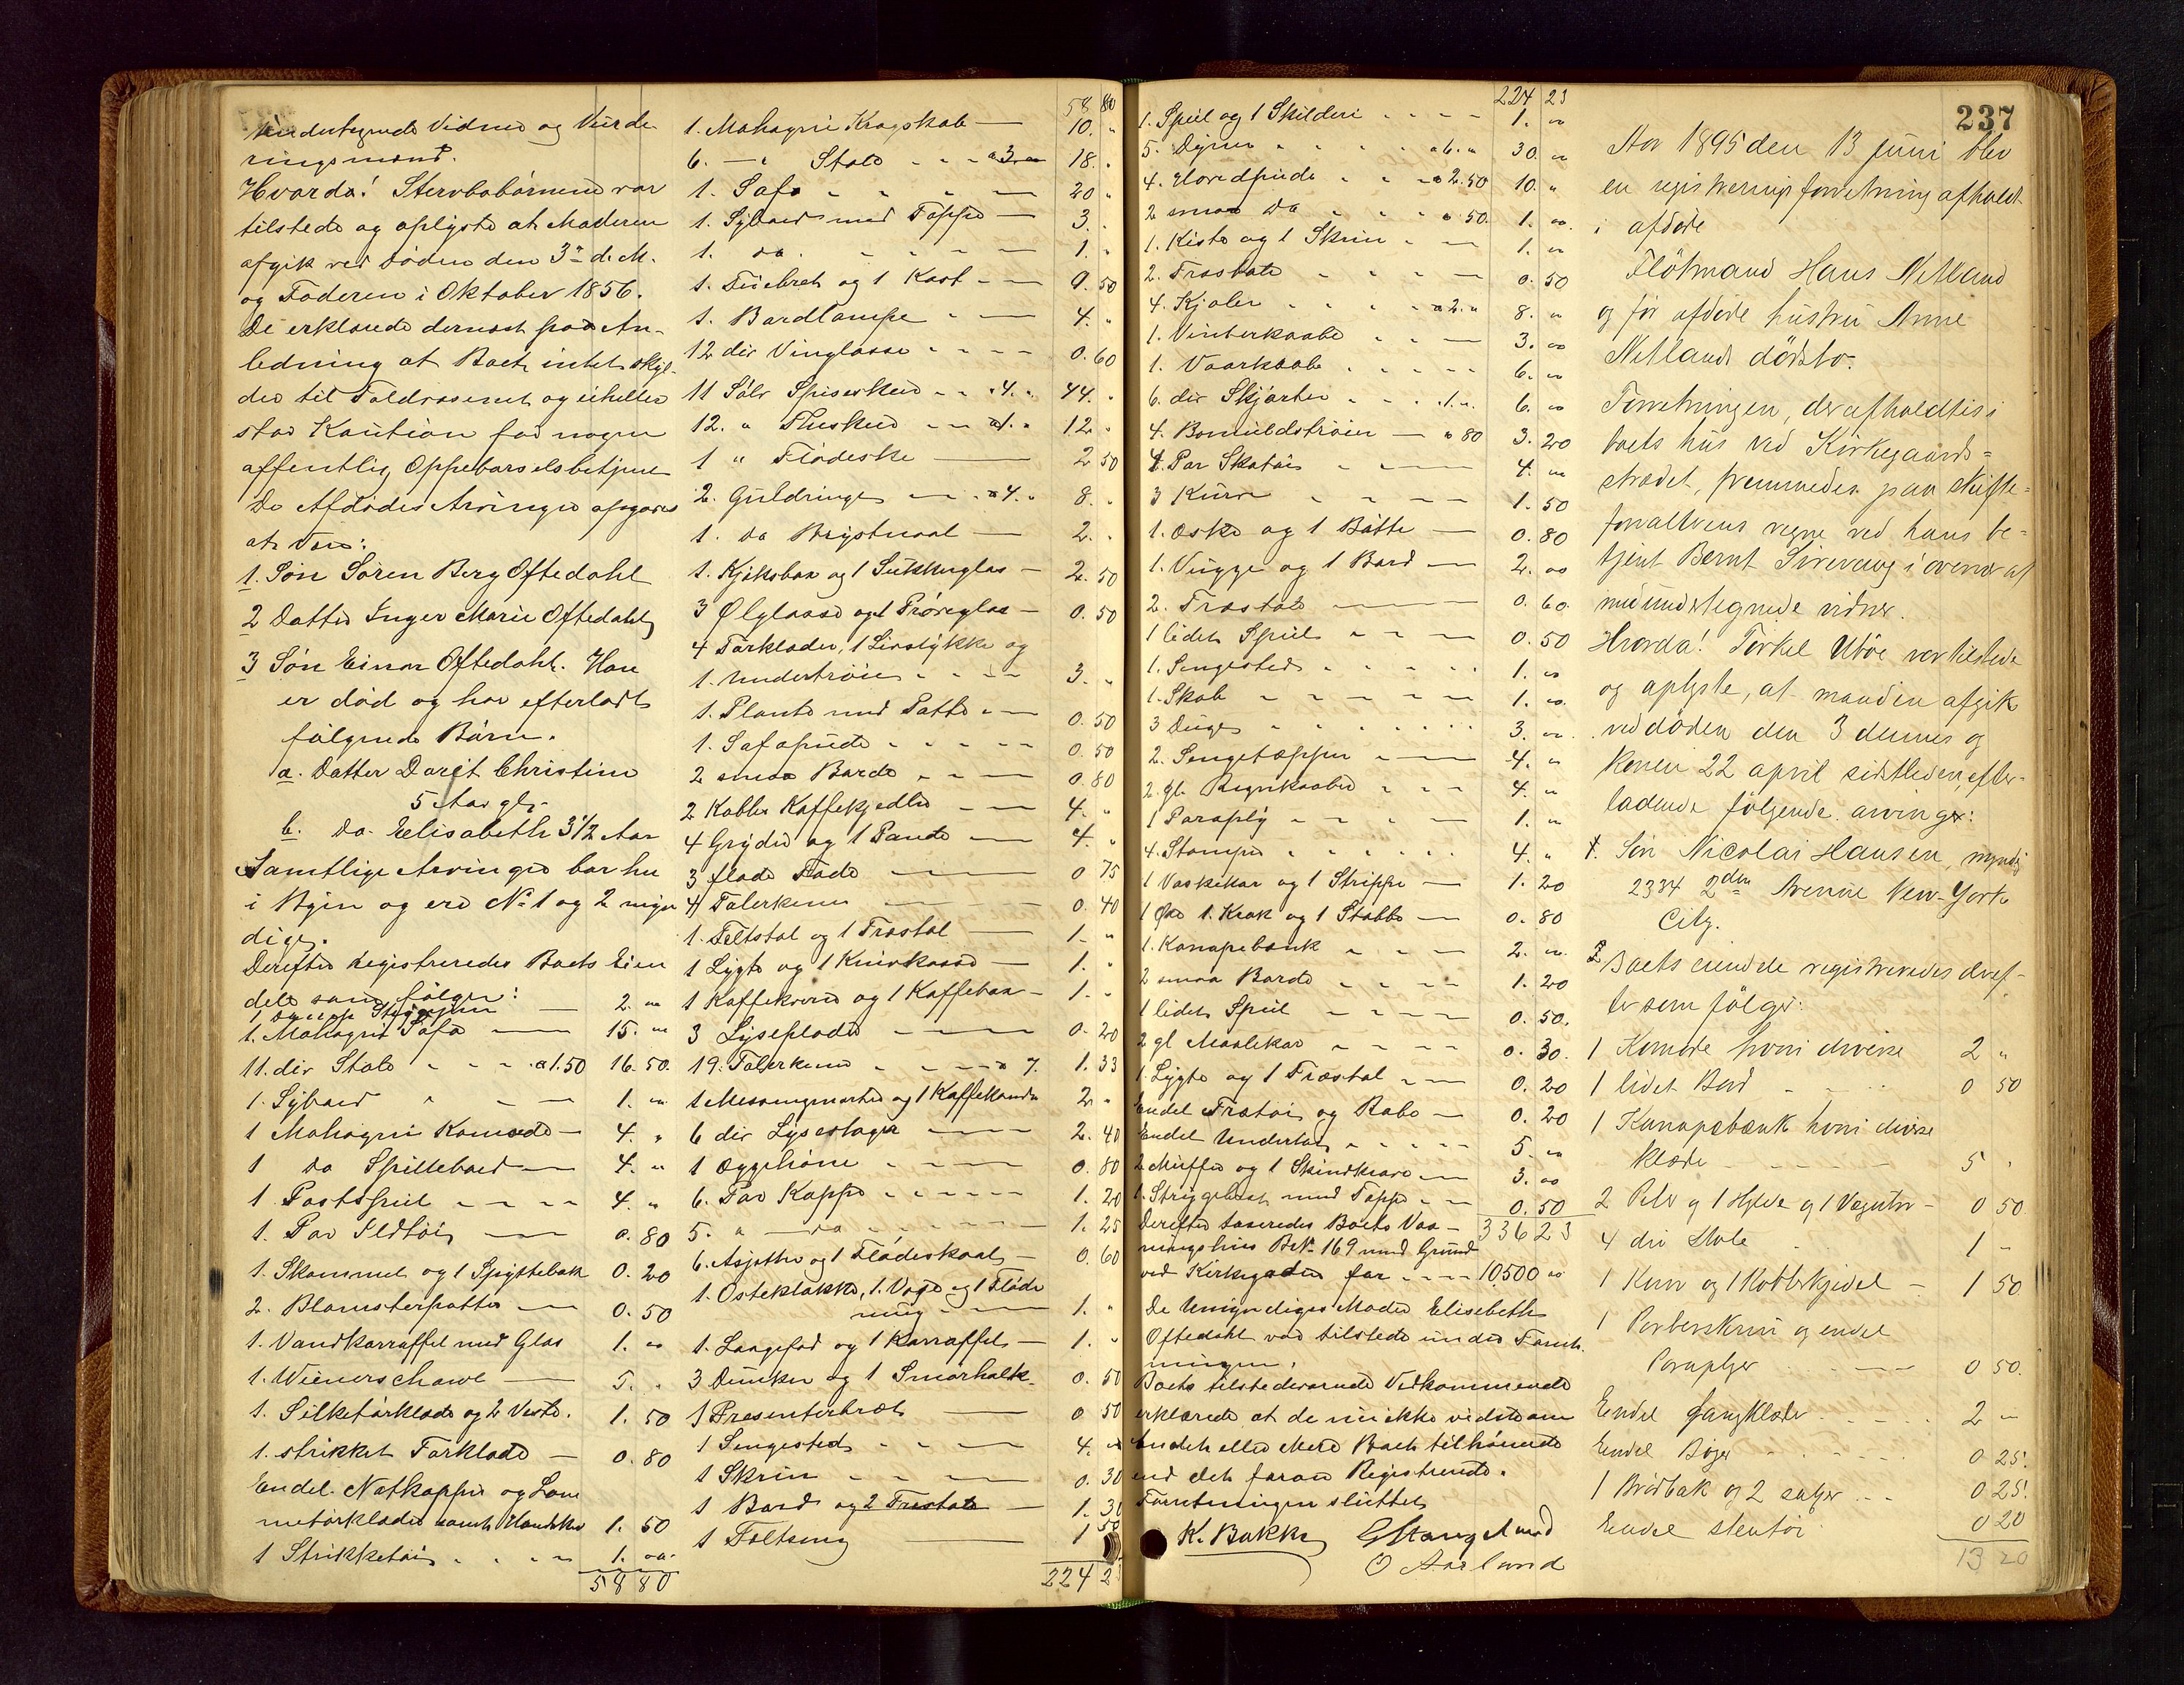 undertegnede Vidner og Vurde
ringsmænd.
Hvorda! Stervbobørnene var
tilstede og oplyste at Moderen
afgik ved Døden den 3de d. M.
og Faderen i Oktober 1856.
De erklærede dernæst paa An-
ledning at Boet intet skyl-
der til Toldvæsenet og ei heller
staar Kaution for nogen
offentlig Oppebørselsbetjent
De Afdødes Arvinger opgaves
at være:
1. Søn Søren Berg Oftedahl
2 Datter Inger Marie Oftedahl
3 Søn Einar Oftedahl. Han
er død og har efterladt
følgende Børn.
a. Datter Dorit Christine
5 Aar gl.
b. do. Elisabeth 3 1/2 Aar
Samtlige Arvinger bor her
i Byen og ere No 1 og 2 myn
dige.
Derefter registreredes Boets Eien
dele som følger:
1 2. "
1. Mahogni Sofa 15. "
11. div Stole a 1.50 16. 50.
1. Sybord 1. "
1 Mahogni Komode 4. "
1 do Spillebord 4. "
1 Postspeil 4. "
1. Par Ildtøi 0. 80
1. Skammel og 1 Spyttebak 0. 20
2. Blomsterpotter 0. 50
1. Vandkarraffel med Glas 1. "
1. Wienerschawl 5. "
1. Silketørklæde og 2 Veste. 1. 50
1. strikket Tørklæde 0. 80
Endel Natkapper og Lom
metørklæder samt Handsker 1. 50
1 Strikketøi 1. "
58 80
58 80
1. Mahogni Kragskab 10. "
6. " Stole a 3. " 18. "
1. Sofa 20 "
1. Sybord med Teppe 3. "
1. do. 1. "
1. Tebret og 1 Kost 0. 50
1. Bordlampe 4. "
12 div Vinglasse 0. 60
11 Sølv Spiseskeer a 4. " 44. "
12. " Theskeer a 1. " 12. "
1 " Flødeske 2 50
2. Guldringe a 4. " 8. "
1. do Brystnaal 2. "
1. Kjøksbox og 1 Sukkerglas 2. 50
3 Ølglasse og 1 Prøveglas 0. 50
4 Tørklæder, 1 Livstykke og
1. Undertrøie 3. "
1. Plante med Potte 0. 50
1. Sofapude 0. 50
2 smaa Borde 0. 80
2 Kobber Kaffekjedler 4. "
4 Gryder og 1 Pande 4. "
3 flade Fade 0 75
4 Talerkener 0. 40
1. Feltstol og 1 Træstol 1. "
1 Lygte og 1 Knivkasse 1. "
1 Kaffekværn og 1 Kaffebox 1. "
3 Lyseplader 0. 20
19. Talerkener a 7. 1. 33
1 Messingmorter og 1 Kaffekande 2 "
6 div Lysestager 2. 40
1 Æggehøne 0. 80
6. Par Kopper 1. 20
5. " do 1. 25
6. Asjetter og 1 Flødeskaal 0. 60
1. Osteklokke, 1. Vase og 1 Fløde
mug 1. "
1. Langfad og 1 Karraffel 1. "
3 Dunker og 1 Smørholk 0. 50
1 Presenterbret 0 50
1 Sengested 4. "
1 Skrin 0. 30
1 Bord og 2 Træstole 1. 30
1 Feltseng 1 50
224 2
224 23
1. Speil og 1 Skilderi 1. "
5. Dyner a 6. " 30. "
4. Hovedpuder a 2.50 10. "
2 smaa do a 50. 1. "
1. Kiste og 1 Skrin 1. "
2. Træstole 0. 50
4. Kjoler a 2. " 8. "
1. Vinterkaabe 3. "
1. Vaarkaabe 6. "
6. div Skjørter a 1. " 6. "
4. Bomuldstrøier a 80 3. 20
4. Par Skotøi 4. "
3 Kurve 1. 50
1. Æske og 1 Bøtte 0. 80
1. Vugge og 1 Bord 2. "
2. Træstole 0. 60.
1 lidet Speil 0. 50
1. Sengested 1. "
1. Skab 1. "
3 Duge 3. "
2. Sengetæpper 4. "
2. gl. Regnkaaber 4. "
1 Paraply 1. "
4. Stamper 4. "
1 Vaskekar og 1 Strippe 1. 20
1 Øxe 1. Krak og 1 Stabbe 0. 80
1. Kanapebænk 2. "
2 smaa Borde 1. 20
1 lidet Speil 0. 50.
2 gl Maalekar 0. 30.
1. Lygte og 1 Træstol 0. 20
Endel Trætøi og Rabe 0. 20
Endel Undertøi 5. "
2 Muffer og 1 Skindkrave 3. "
1. Strygebret med Teppe 0. 50
336 23
Derefter taxeredes Boets Vaa-
ningshus Bno. 169 med Grund
ved Kirkegaden for 10,500 "
De Umyndiges Moder Elisabeth
Oftedahl var tilstede under Forret-
ningen.
Boets tilstedeværende Vedkommende
erklærede, at de nu ikke vidste om
Andet eller Mere Boet tilhørende
end det foran Registrerede.
Forretningen sluttet
K. Bakke G Stangeland
O Aarland
237
Aar 1895 den 13 juni blev
en registreringsforretning afholdt
i afdøde
Fløtmand Hans Netland
og før afdøde hustru Anne
Netlands dødsbo.
Forretningen, der afholdtes i
boets hus ved Kirkegaards=
strædet, fremmedes paa skifte=
forvalterens vegne ved hans be=
tjent Bernt Sirevaag i overvær af
medundertegnede vidner.
Hvorda! Torkel Ubøe var tilstede
og oplyste, at manden afgik
ved døden den 3 dennes og
konen 22 april sidstleden, efter-
ladende følgende arvinger:
1. Søn Nicolai Hansen, myndig
2334 2den Avenue New-York
City.
2 Boets eiendele registreredes dref-
ter som følger:
1 Komode hvori diverse 2 "
1 lidet Bord 0 50
1 Kanapebænk hvori diverse
klæder 5 "
2 Pele og 1 Hylde og 1 Vægur 0 50
4 div Stole 1 "
1 Kurv og 1 Kobberkjedel 1 50
1 Barberskrin og endel
Paraplyer 0 50.
Endel Gangklæder 2 "
Endel Bøger 0 25.
1 Brødbak og 2 salger 0 25.
Endel stentøi 0 20
13 20